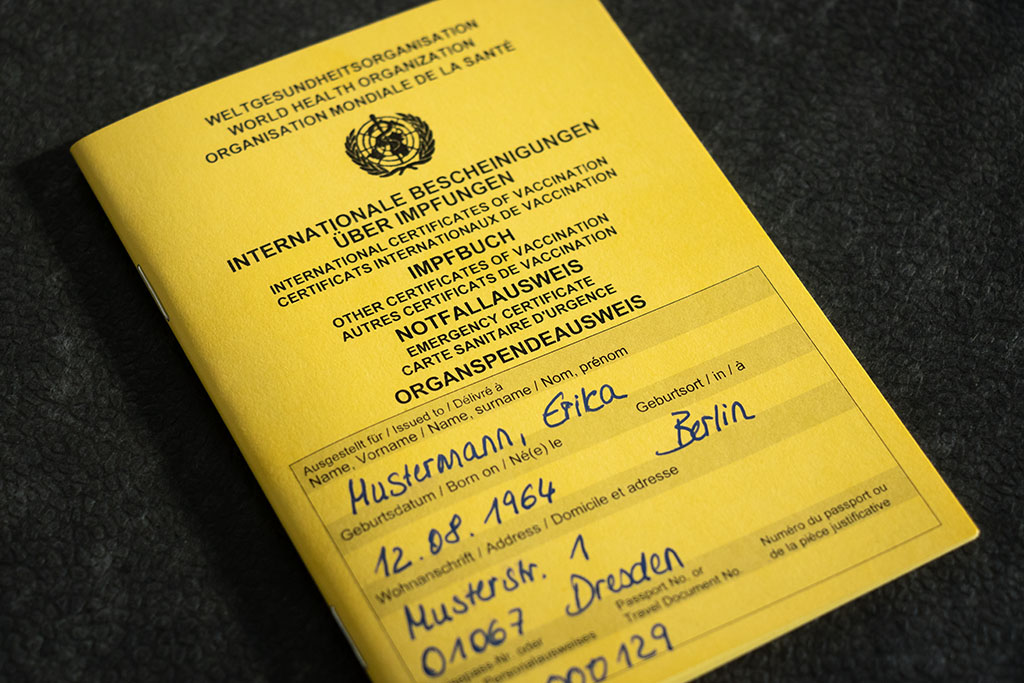 WELTGESUNDHEITSORGANISATION
WORLD HEALTH ORGANIZATION
ORGANISATION MONDIALE DE LA SANTÉ
INTERNATIONALE BESCHEINIGUNGEN
ÜBER IMPFUNGEN
INTERNATIONAL CERTIFICATES OF VACCINATION
CERTIFICATS INTERNATIONAUX DE VACCINATION
IMPFBUCH
OTHER CERTIFICATES OF VACCINATION
AUTRES CERTIFICATS DE VACCINATION
NOTFALLAUSWEIS
EMERGENCY CERTIFICATE
CARTE SANITAIRE D'URGENCE
ORGANSPENDEAUSWEIS
Ausgestellt für / Issued to / Délivré à
Name, Vorname / Name, surname / Nom, prénom
Mustermann, Erika
Geburtsdatum / Born on / Né(e) le
Geburtsort / in / à
12.08.1964
Berlin
Wohnanschrift / Address / Domicile et adresse
Musterstr. 1
01067 Dresden
oder
Personalausweises
Passport No. or
Travel Document No.
Numéro du passport ou
de la pièce justificative
000129